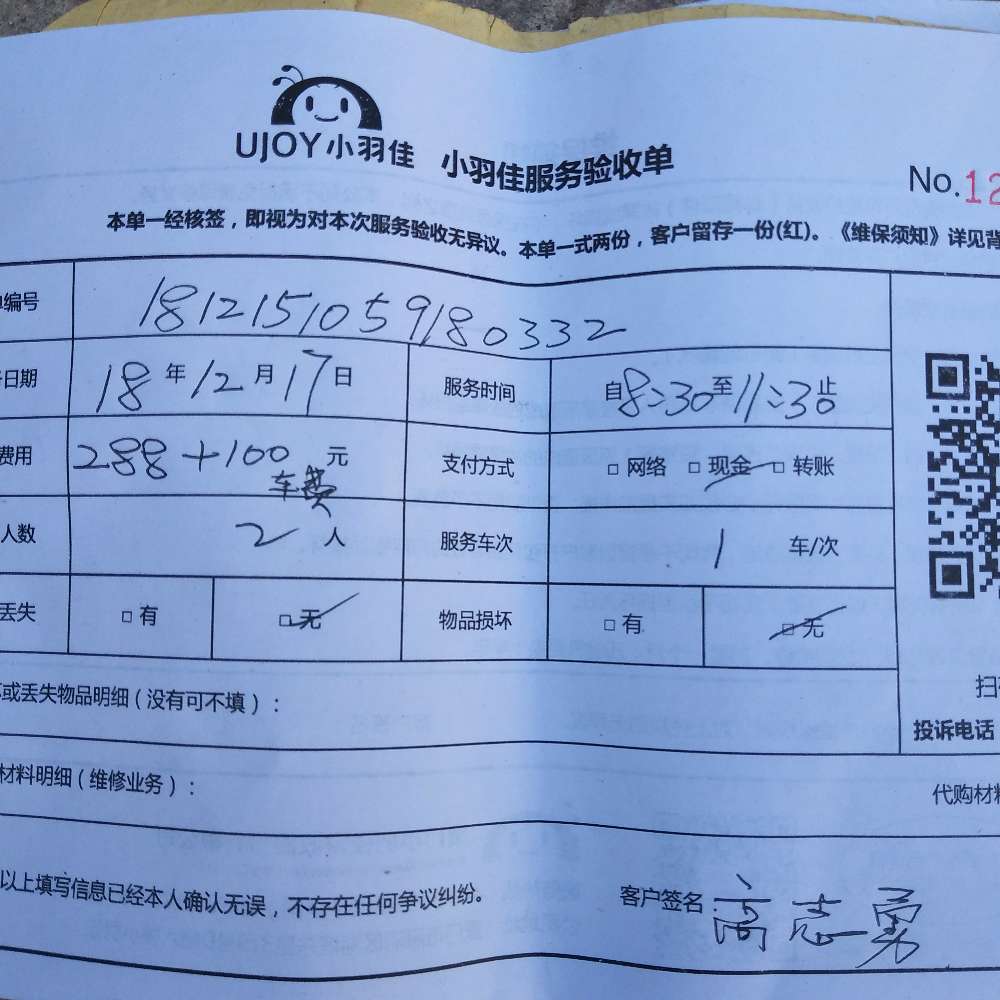 UJOY小羽佳 小羽佳服务验收单
No.12
本单一经核签，即视为对本次服务验收无异议。本单一式两份，客户留存一份(红)。《维保须知》详见背
编号 1812151059180332
日期 18年12月17日 服务时间 自8:30至11:30止
费用 288+100元 支付方式 □网络 □现金 □转账
车费
人数 2人 服务车次 1车/次
丢失 □有 □无 物品损坏 □有 □无
或丢失物品明细（没有可不填）：
扫
投诉电话
材料明细（维修业务）：
代购材料
以上填写信息已经本人确认无误，不存在任何争议纠纷。 客户签名：高志勇